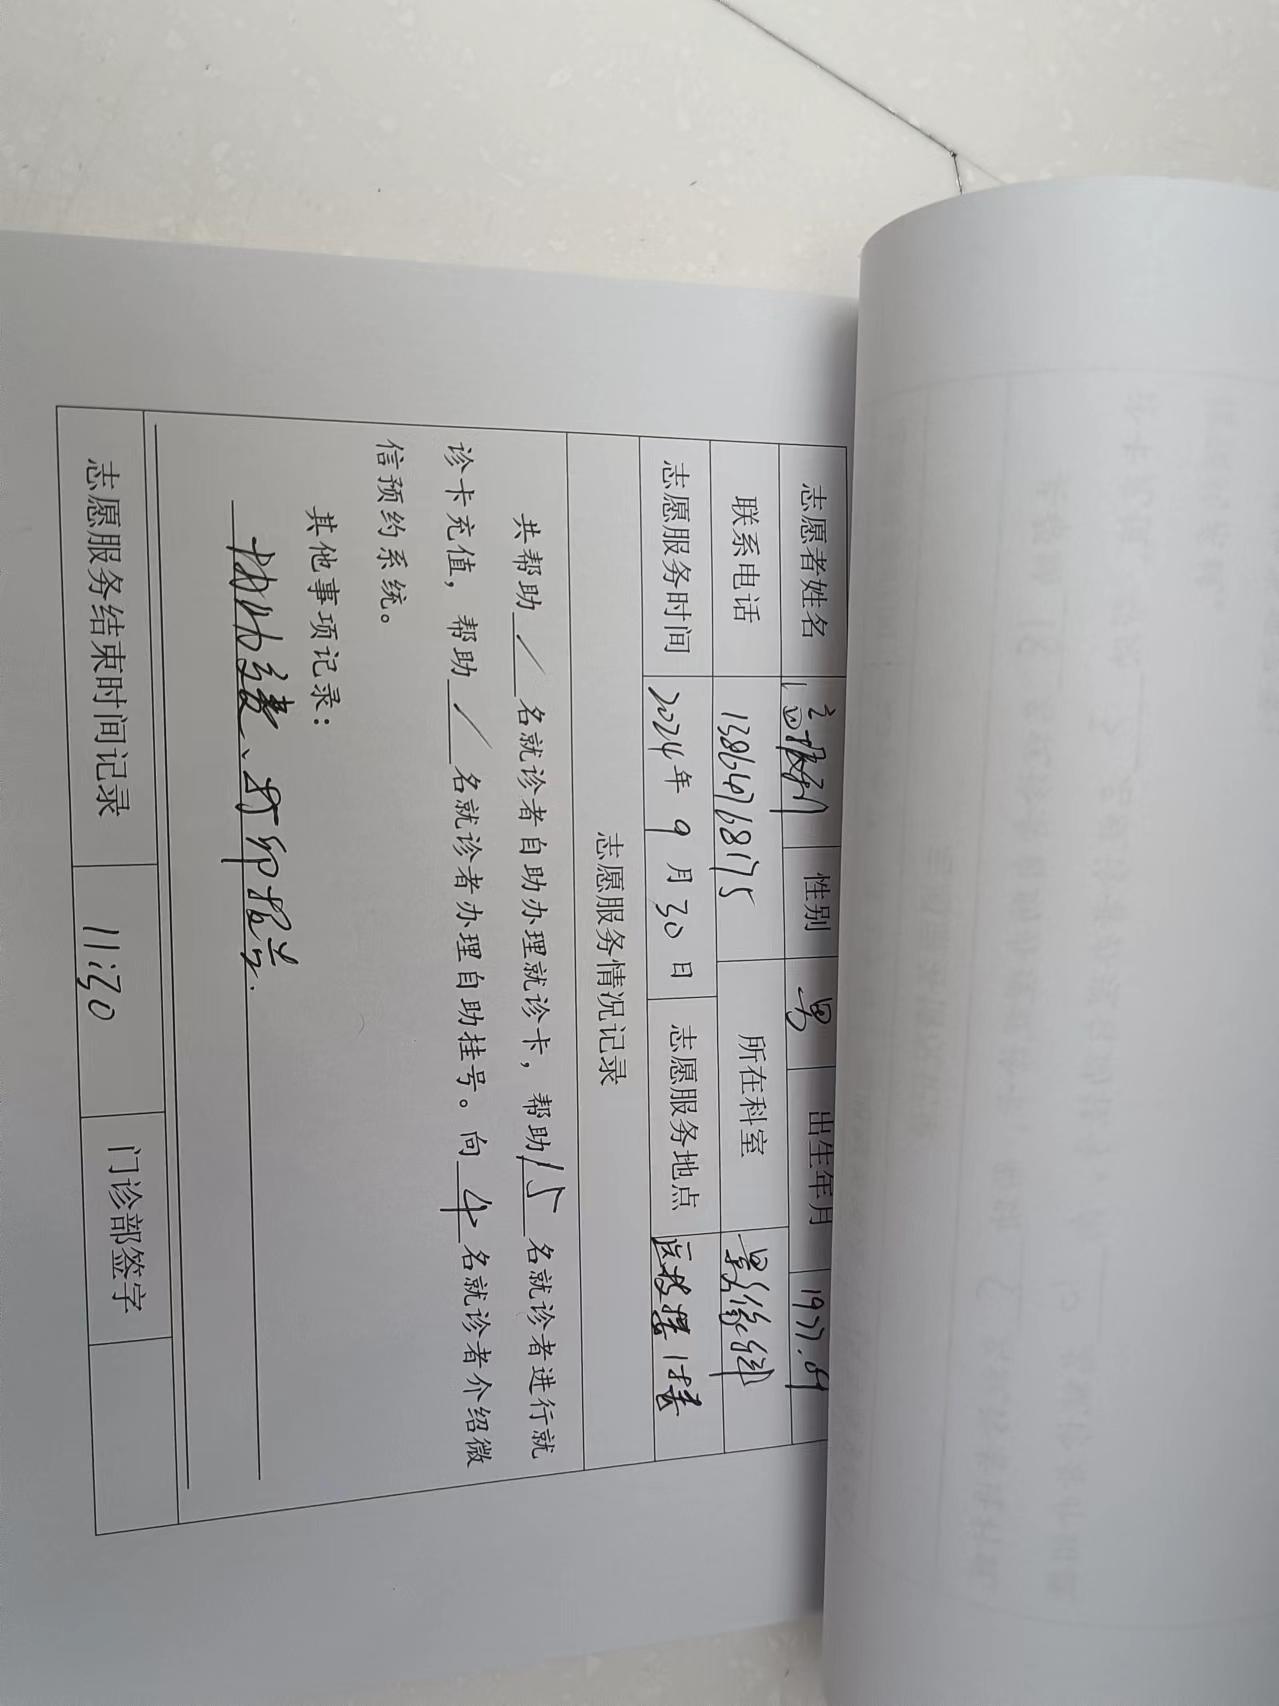 志愿者姓名 性别 男 出生年月 1977.09
联系电话 所在科室 影像科
志愿服务时间 2024年9月30日 志愿服务地点 医技楼1楼
志愿服务情况记录
共帮助／名就诊者自助办理就诊卡，帮助15名就诊者进行就
诊卡充值，帮助／名就诊者办理自助挂号。向4名就诊者介绍微
信预约系统。
其他事项记录：
、打印报告.
志愿服务结束时间记录 11:30 门诊部签字